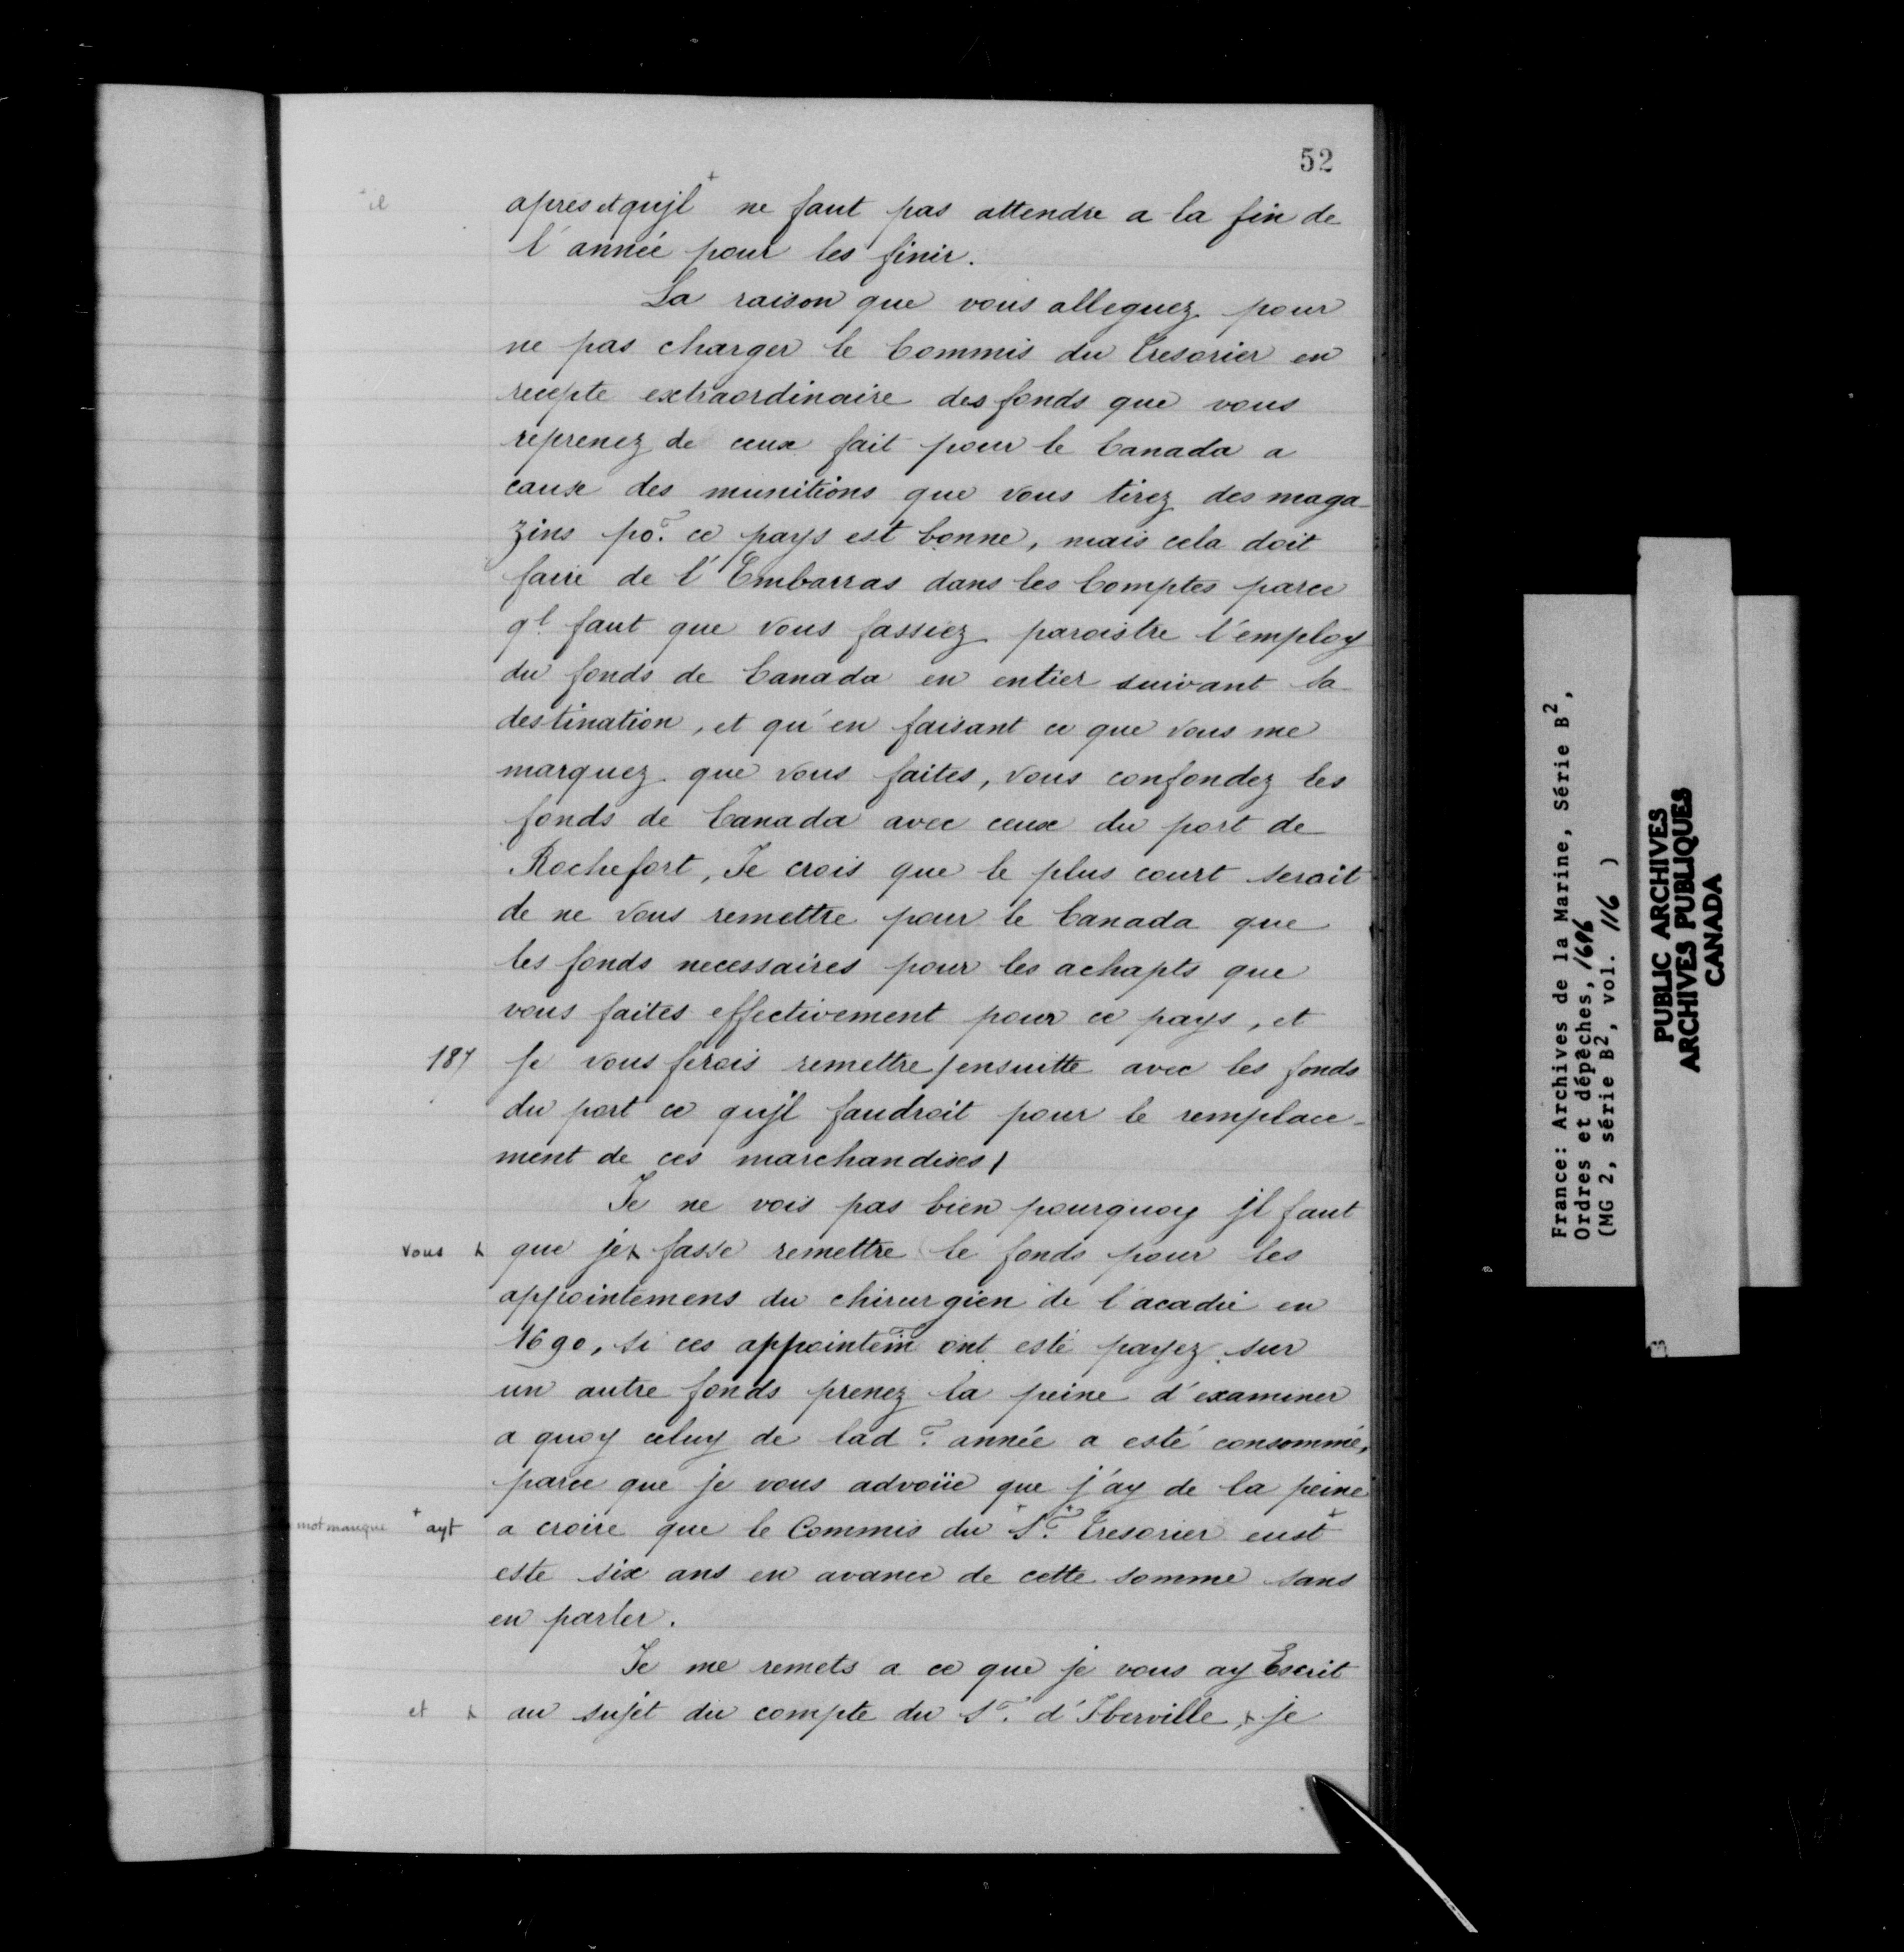 52
+il apres et qujl + ne faut pas attendre a la fin de
l'année pour les finir.
La raison que vous alleguez pour
ne pas charger le Commis du Tresorier en
recepte extraordinaire des fonds que vous
reprenez de ceux fait pour le Canada a
cause des munitions que vous tirez des maga-
zins por. ce pays est bonne, mais cela doit
faire de l'Embarras dans les Comptes parce
ql. faut que vous fassiez paroistre l'employ
du fonds de Canada en entier suivant sa
destination, et qu'en faisant ce que vous me
marquez que vous faites, vous confondez les
fonds de Canada avec ceux du port de
Rochefort, Je crois que le plus court serait
de ne vous remettre pour le Canada que
les fonds necessaires pour les achapts que
vous faites effectivement pour ce pays, et
187 Je vous ferois remettre / ensuitte avec les fonds
du port ce qujl faudroit pour le remplace-
ment de ces marchandises /
Je ne vois pas bien pourquoy jl faut
vous x que je x fasse remettre le fonds pour les
appointemens du chirurgien de l'acadie en
1690, si ces appointem̃ ont esté payez sur
un autre fonds prenez la peine d'examiner
a quoy celuy de lade. année a esté consommé,
parce que je vous advoüe que j'ay de la peine
mot manque + ayt a croire que le Commis du + Sr. + Tresorier eust +
este six ans en avance de cette somme sans
en parler.
Je me remets a ce que je vous ay Escrit
et x au sujet du compte du Sr. d'Iberville, x je
France: Archives de la Marine, Série B2,
Ordres et dépêches, 1696
(MG 2, série B2, vol. 116 )
PUBLIC ARCHIVES
ARCHIVES PUBLIQUES
CANADA